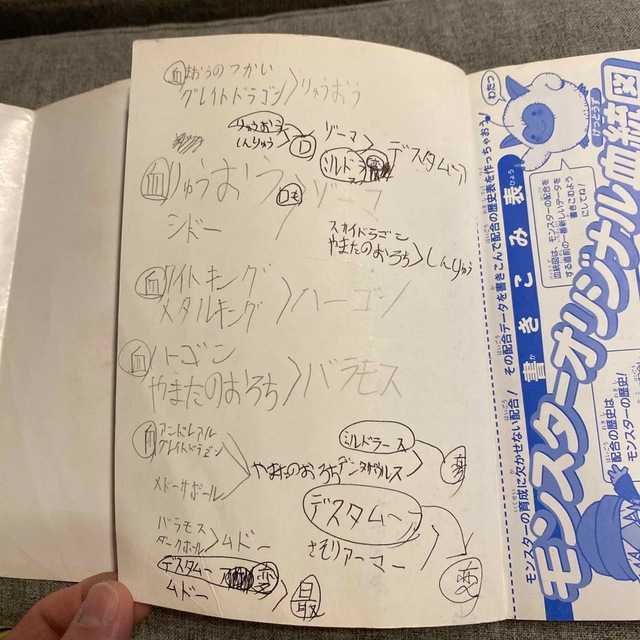 血 まおうのつかい
グレイトドラゴン〉りゅうおう
りゅうおう
しんりゅう〉D
ゾーマ
シルドラ〉デスタムーア
血 りゅうおう
シドー〉ゾーマ
スカイドラゴン
やまたのおろち〉しんりゅう
血 ワイトキング
メタルキング〉ハーゴン
血 ハーゴン
やまたのおろち〉バラモス
血 アンドレアル
グレイトドラゴン
メドーサボール〉やまたのおろち
ミルドラース
デンタザウルス
バラモス
ダークホール〉ムドー
デスタムーア
さそりアーマー
デスタムーア 変
ムドー
最
モンスターの育成に欠かせない配合！その配合データを書きこんで配合の歴史表を作っちゃおう。
いくせい
か
はいごう
はいごう
か
はいごう
れきしひょう
つく
書きこみ表
か
ひょう
モンスターオリジナル血統図
けっとうず
わたつ
血統図は、モンスターの配合を
する直前の一番新しいデータを
書きこむよう
にしてね！
配合の歴史は
モンスターの歴史！
はいごう
れきし